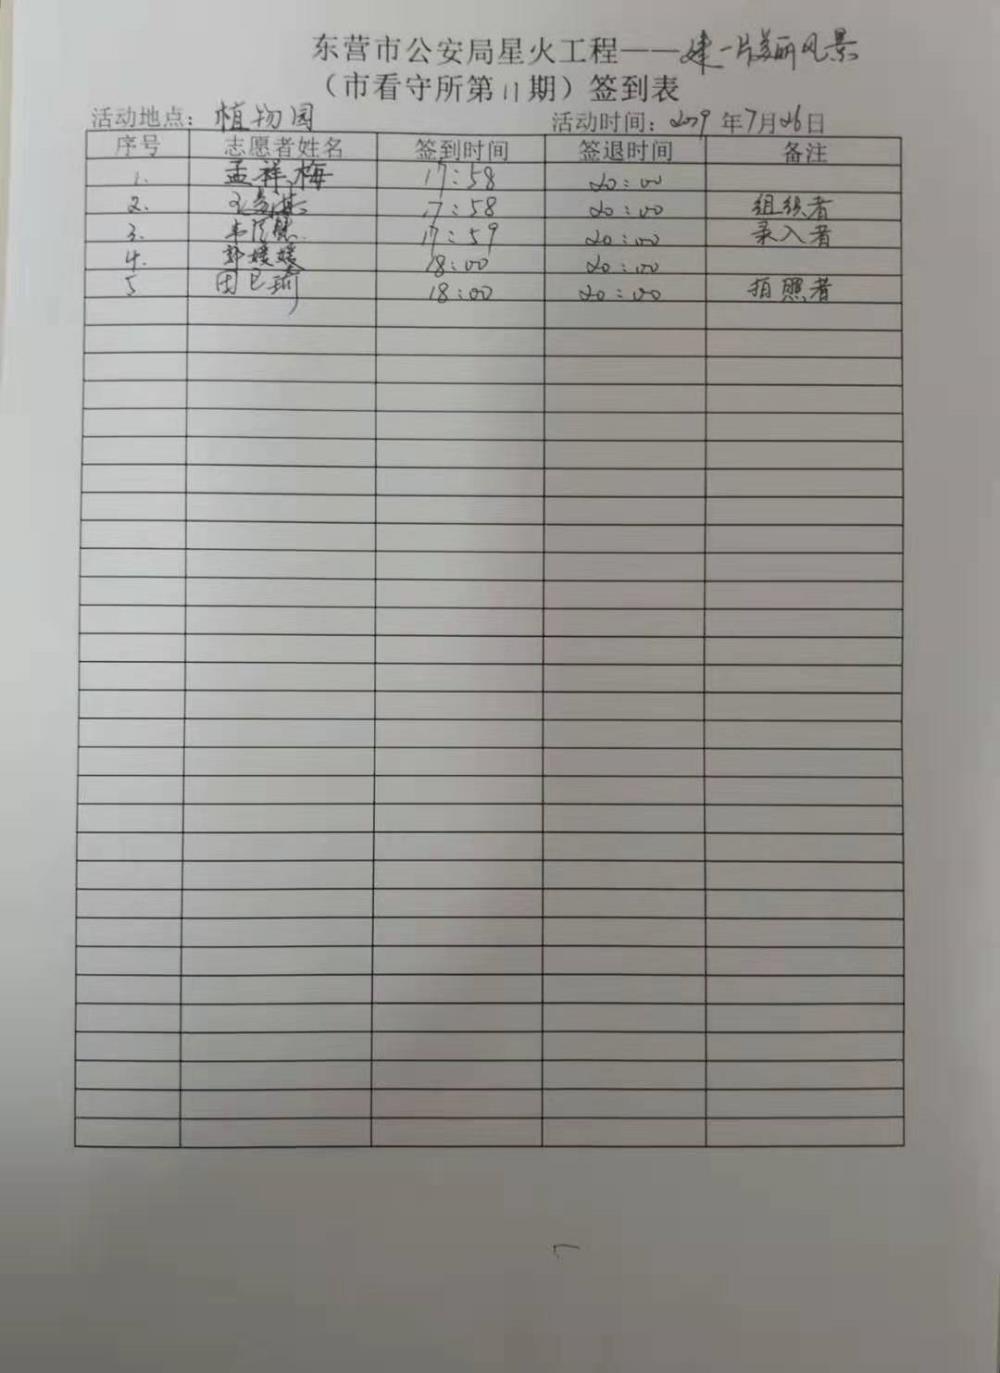 东营市公安局星火工程——建一片美丽风景
（市看守所第11期）签到表
活动地点：植物园 活动时间：2019年7月26日
序号 志愿者姓名 签到时间 签退时间 备注
1. 孟祥梅 17:58 20:00
2. 17:58 20:00 组织者
3. 17:59 20:00 录入者
4. 18:00 20:00
5 18:00 20:00 拍照者